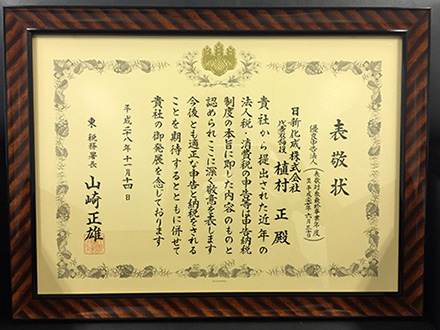 表敬状
優良申告法人
日新化成株式会社
代表取締役 植村 正 殿
貴社から提出された近年の
法人税・消費税の申告等は申告納税
制度の本旨に即した内容のものと
認められここに深く敬意を表します
今後とも適正な申告と納税をされる
ことを期待するとともに併せて
貴社の御発展を念じております
平成二十八年十一月十四日
東 税務署長 山﨑正雄